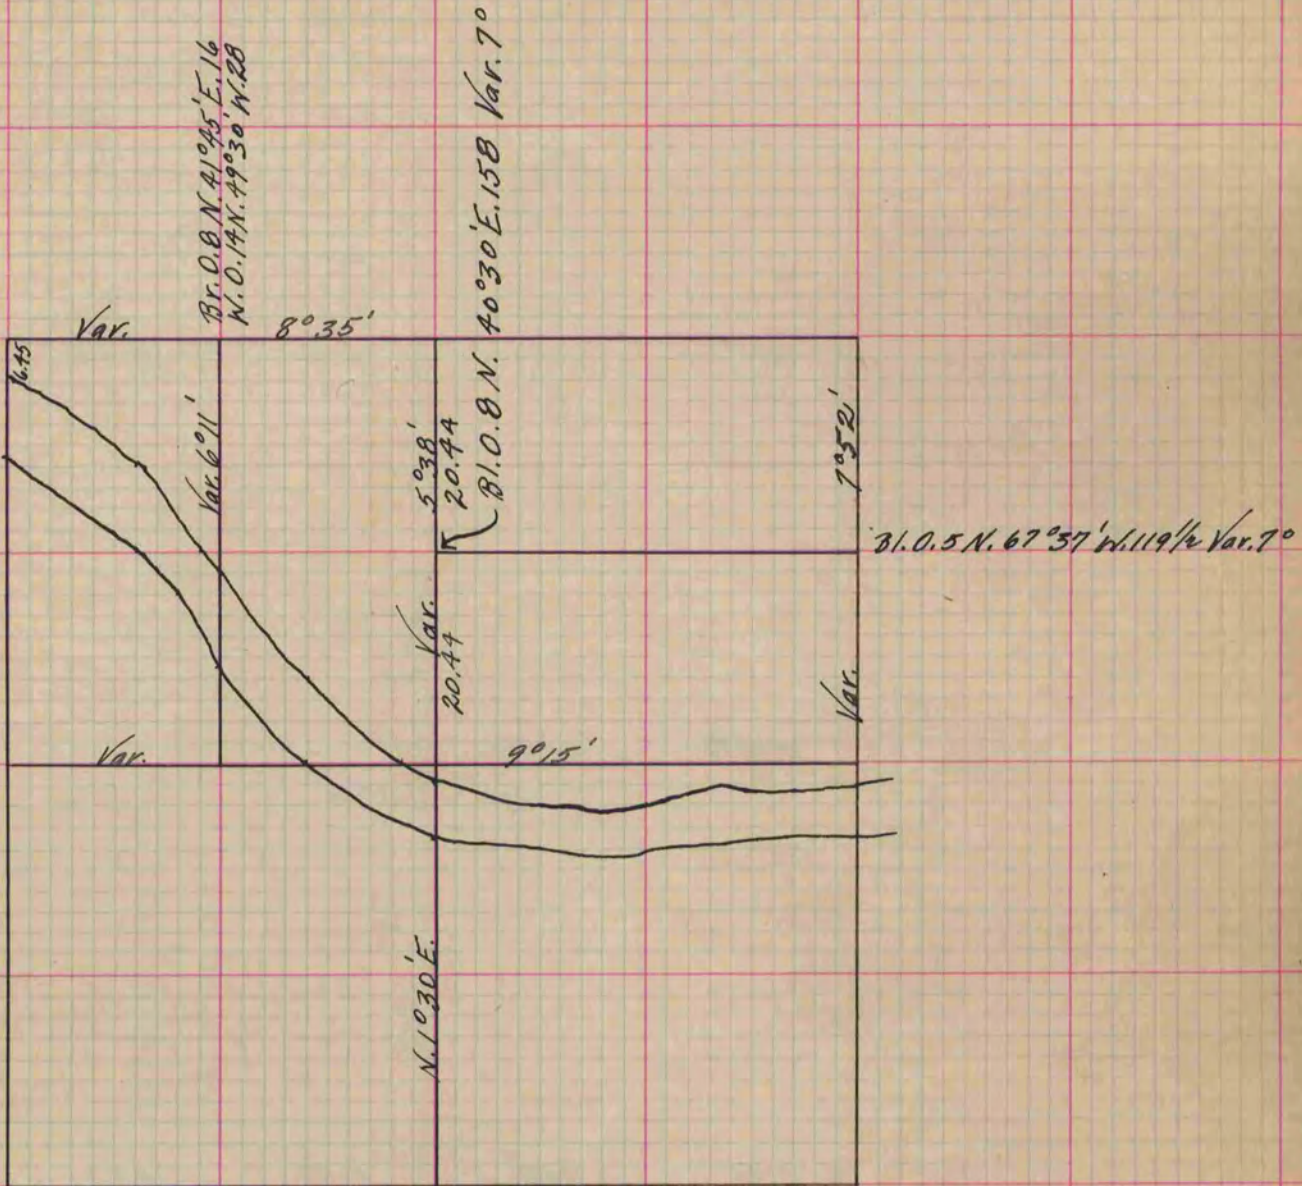 Br. O. 8 N. 41° 45' E. 16
W. O. 14 N. 49° 30' W. 28
Bl. O. 8 N. 40° 30' E. 158 Var. 7°
Var. 8° 35'
16.45
Var. 6° 11'
Var. 5° 38'
20.44
20.44
Var. 7° 52'
Bl. O. 5 N. 67° 37' W. 119 1/2 Var. 7°
Var. 9° 15'
N. 1° 30' E.